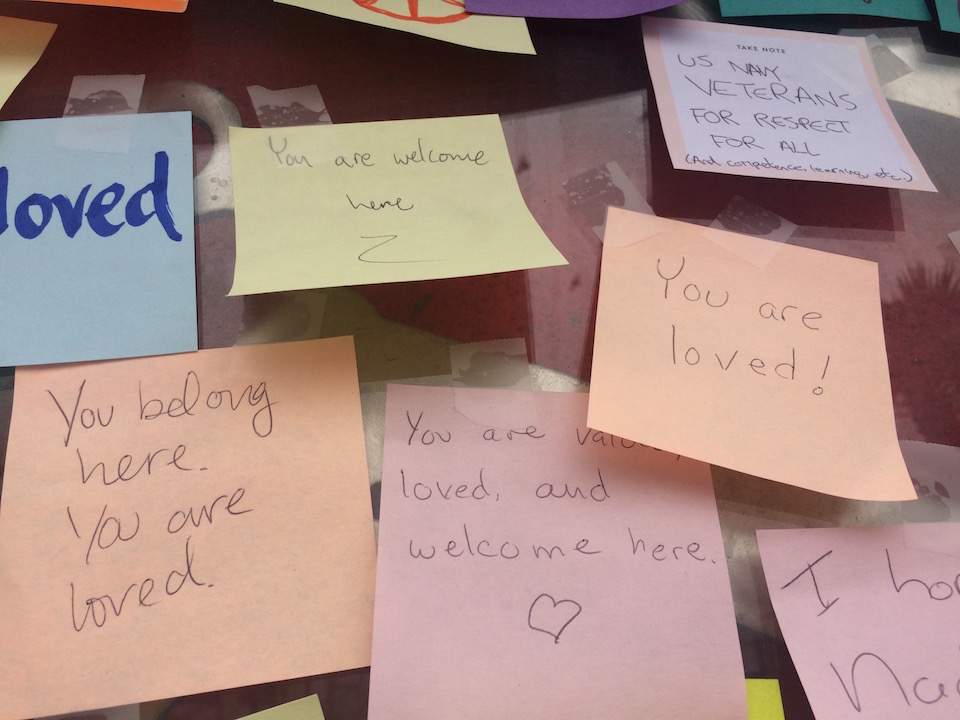 TAKE NOTE
US NAVY
VETERANS
FOR RESPECT
FOR ALL
(And competence, learning, etc.)
loved
You are welcome
here
You are
loved!
You belong
here.
You are
loved.
You are
loved, and
welcome here.
I